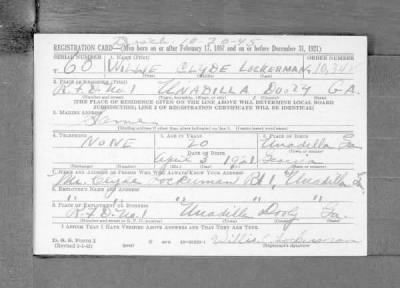 Disch. 10-20-45
REGISTRATION CARD—(Men born on or after February 17, 1897 and on or before December 31, 1921)
SERIAL NUMBER 1. NAME (Print) ORDER NUMBER
T 60 WILLIE CLYDE LOCKERMAN 10,348
(First) (Middle) (Last)
2. PLACE OF RESIDENCE (Print)
R.F.D. No. 1 UNADILLA DOOLY GA.
(Number and street) (Town, township, village, or city) (County) (State)
[THE PLACE OF RESIDENCE GIVEN ON THE LINE ABOVE WILL DETERMINE LOCAL BOARD
JURISDICTION; LINE 2 OF REGISTRATION CERTIFICATE WILL BE IDENTICAL]
3. MAILING ADDRESS
Same
[Mailing address if other than place indicated on line 2. If same insert word same]
4. TELEPHONE 5. AGE IN YEARS 6. PLACE OF BIRTH
NONE 20 Unadilla Ga.
DATE OF BIRTH (Town or county)
April 3 1921 Georgia
(Exchange) (Number) (Mo.) (Day) (Yr.) (State or country)
7. NAME AND ADDRESS OF PERSON WHO WILL ALWAYS KNOW YOUR ADDRESS
Mr. Clyde Lockerman Rt 1, Unadilla Ga
8. EMPLOYER'S NAME AND ADDRESS
" " " " "
9. PLACE OF EMPLOYMENT OR BUSINESS
R.F.D. No. 1 Unadilla Dooly Ga.
(Number and street or R. F. D. number) (Town) (County) (State)
I AFFIRM THAT I HAVE VERIFIED ABOVE ANSWERS AND THAT THEY ARE TRUE.
D. S. S. FORM 1
(Revised 1-1-42) (over)
Willie C Lockerman
(Registrant's signature)